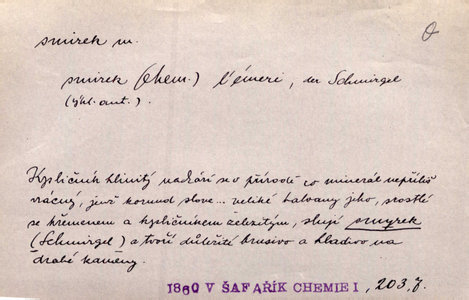 smirek m.
smirek (chem.) l'émeri, der Schmirgel
(ykl. aut.).
Kysličník hlinitý nadází se v přírodě co minerál nepříliš
vzácný, jenž korund slove... veliké balvany jeho, srostlé
se křemenem a kysličníkem železitým, slují smyrek
(Schmirgel) a tvoří důležité brusivo a hladivo na
drahé kameny.
1860 V ŠAFAŘÍK CHEMIE I, 203,7.